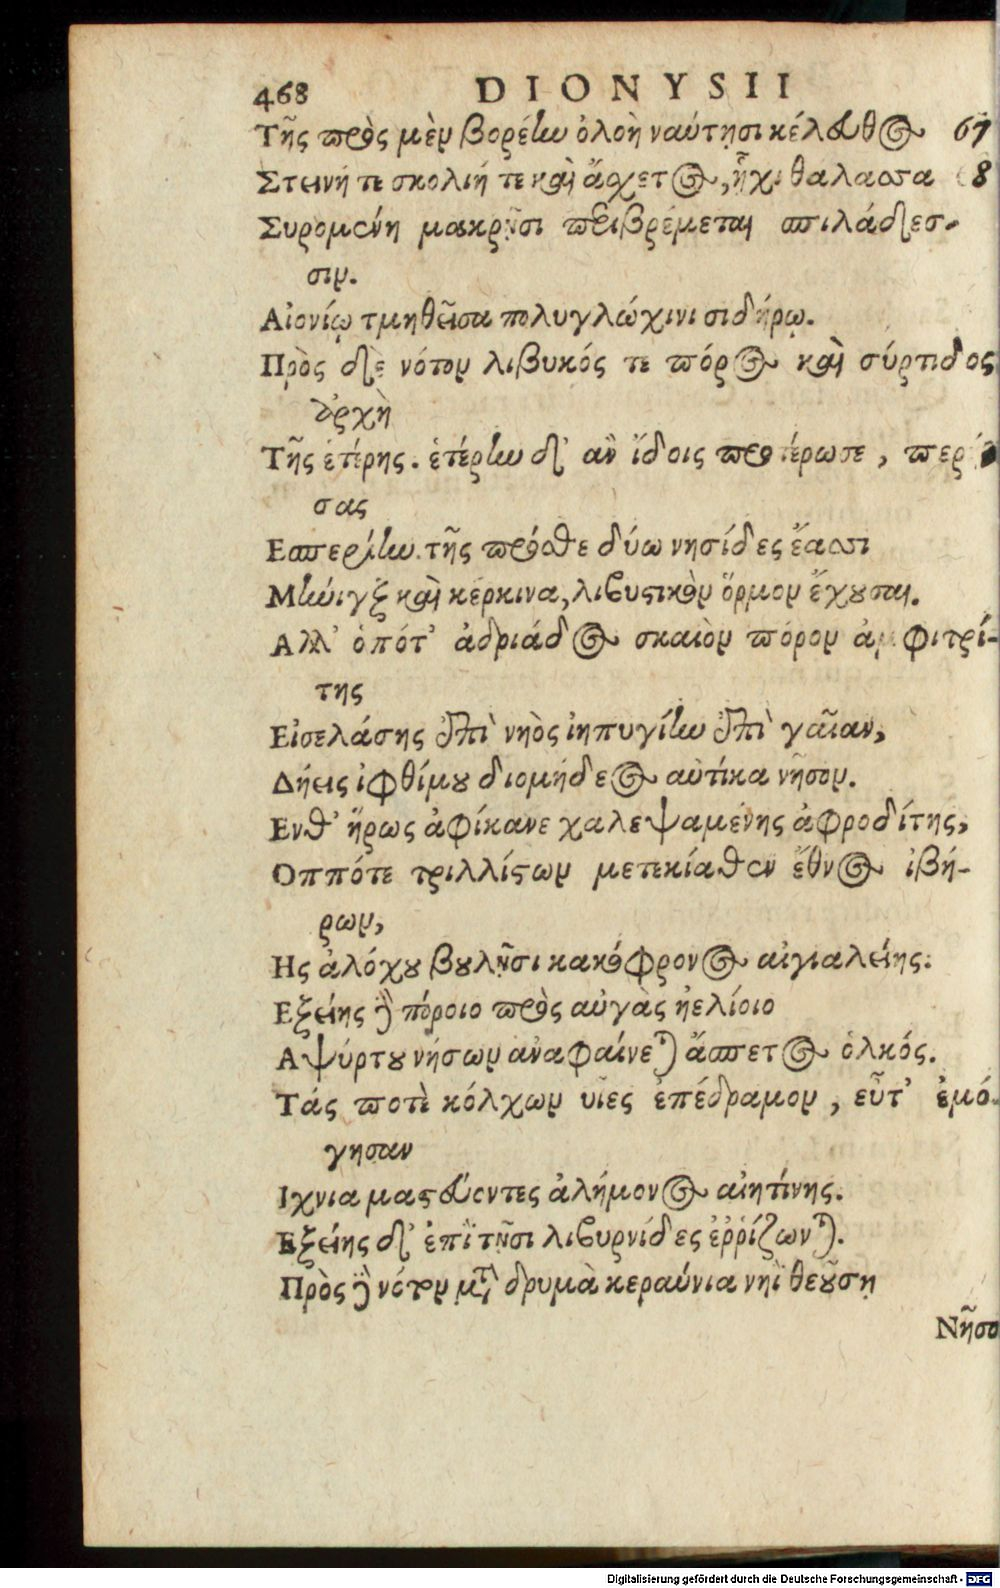 468 DIONYSII
Τῆς πρὸς μὲν βορέην ὀλοὴ ναύτῃσι κέλευθος 67
Στεινή τε σκολιή τε καὶ ἄσχετος, ἧχι θαλασσα 8
Συρομένη μακρῇσι περιβρέμεται σπιλάδεσ-
σιν.
Αἰονίῳ τμηθεῖσα πολυγλώχινι σιδήρῳ.
Πρὸς δὲ νότον λιβυκός τε πόρος καὶ σύρτιδος
ἀρχὴ
Τῆς ἑτέρης. ἑτέρην δ' ἂν ἴδοις προτέρωσε, περή
σας
Εσπερίην. τῆς πρόσθε δύω νησίδες ἔασσι
Μήνιγξ καὶ κέρκινα, λιβυστικὸν ὅρμον ἔχουσαι.
Αλλ' ὁπότ' ἀδριάδος σκαιὸν πόρον ἀμφιτρί-
της
Εἰσελάσης ἐπὶ νηὸς ἰηπυγίην ἐπὶ γαῖαν,
Δήεις ἰφθίμου διομήδεος αὐτίκα νῆσον.
Ενθ' ἥρως ἀφίκανε χαλεψαμένης ἀφροδίτης,
Οππότε τριλλίστων μετεκίαθεν ἔθνος ἰβή-
ρων,
Ης ἀλόχου βουλῇσι κακόφρονος αἰγιαλείης.
Εξείης δὲ πόροιο πρὸς αὐγὰς ἠελίοιο
Αψύρτου νήσων ἀναφαίνεται ἄσπετος ὁλκός.
Τάς ποτὲ κόλχων υἷες ἐπέδραμον, εὖτ' ἐμό-
γησαν
Ιχνια μαστεύοντες ἀλήμονος αἰητίνης.
Εξείης δ' ἐπὶ τῇσι λιβυρνίδες ἐῤῥίζωνται.
Πρὸς δὲ νότον μετὰ δρυμὰ κεραύνια νηῒ θεούσῃ
Νῆσο
Digitalisierung gefördert durch die Deutsche Forschungsgemeinschaft - DFG